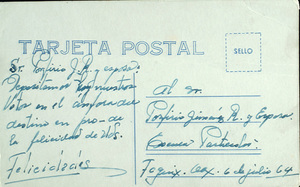 TARJETA POSTAL
SELLO
Sr. Porfirio J. R. y esposa.
Depositamos hoy nuestros
votos en el ánfora del
destino en pro de
la felicidad de Uds.
Felicidades
Al Sr.
Porfirio Jiménez R. y Esposa
Escuela Particular
Oax. 6 de julio 64